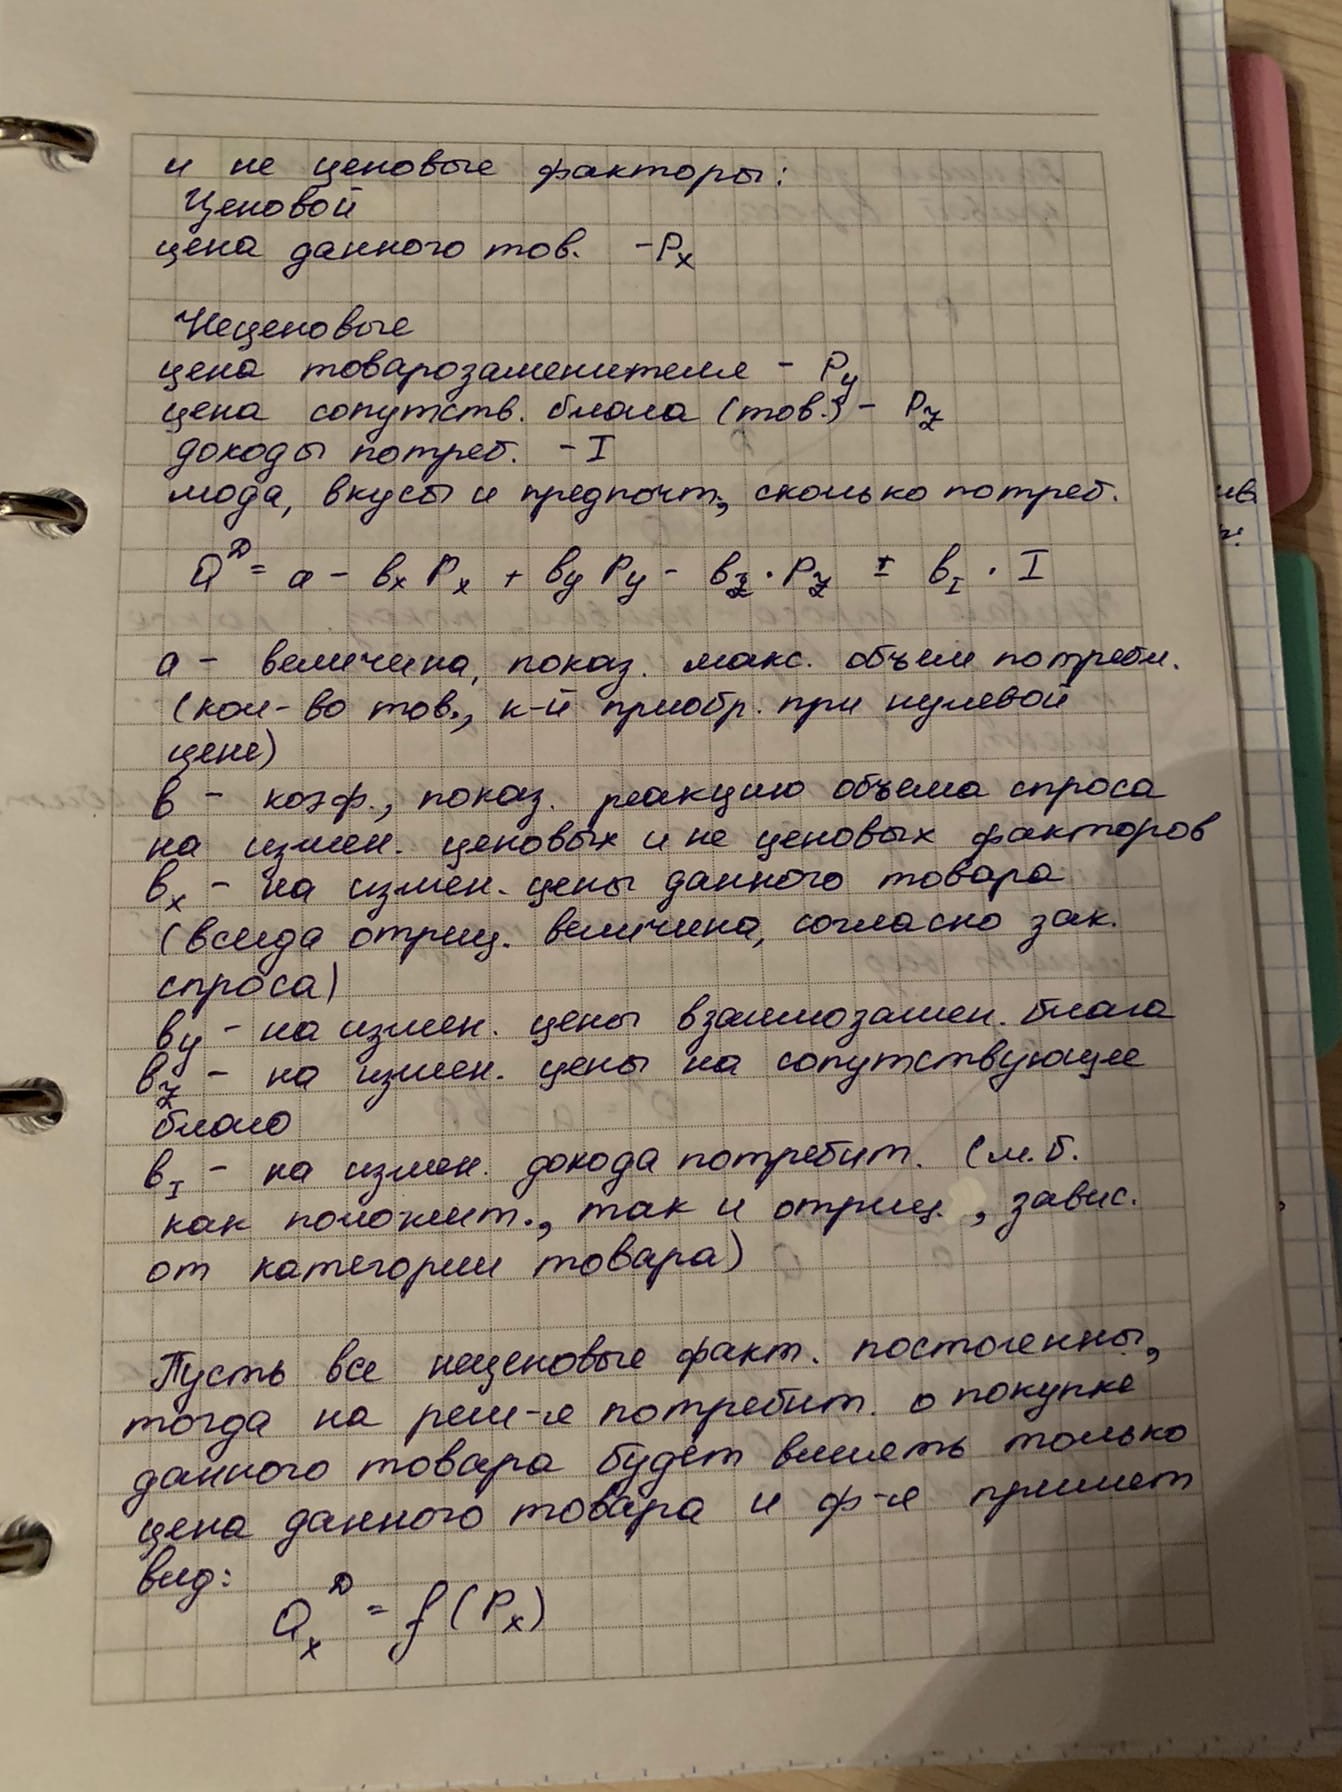 и не ценовые факторы:
Ценовой
цена данного тов. - Px
Неценовые
цена товарозаменителя - Py
цена сопутств. блага (тов.) - Pz
доходы потреб. - I
мода, вкусы и предпочт., сколько потреб.
Q^D = a - вx Px + вy Py - вz · Pz ± вI · I
а - величина, показ. макс. объем потребл.
(кол-во тов., к-й приобр. при нулевой
цене)
в - коэф., показ. реакцию объема спроса
на измен. ценовых и не ценовых факторов
вx - на измен. цены данного товара
(всегда отриц. величина, согласно зак.
спроса)
вy - на измен. цены взаимозамен. блага
вz - на измен. цены на сопутствующее
благо
вI - на измен. дохода потребит. (м.б.
как положит., так и отриц., завис.
от категории товара)
Пусть все неценовые факт. постоянны,
тогда на реш-я потребит. о покупке
данного товара будет влиять только
цена данного товара и ф-я примет
вид:
Qx^D = f(Px)